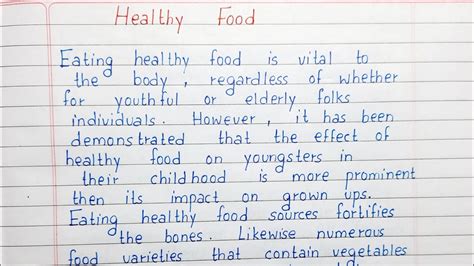 Healthy Food
Eating healthy food is vital to
the body, regardless of whether
for youthful or elderly folks
individuals. However, it has been
demonstrated that the effect of
healthy food on youngsters in
their childhood is more prominent
then its impact on grown ups.
Eating healthy food sources fortifies
the bones. Likewise numerous
food varieties that contain vegetables